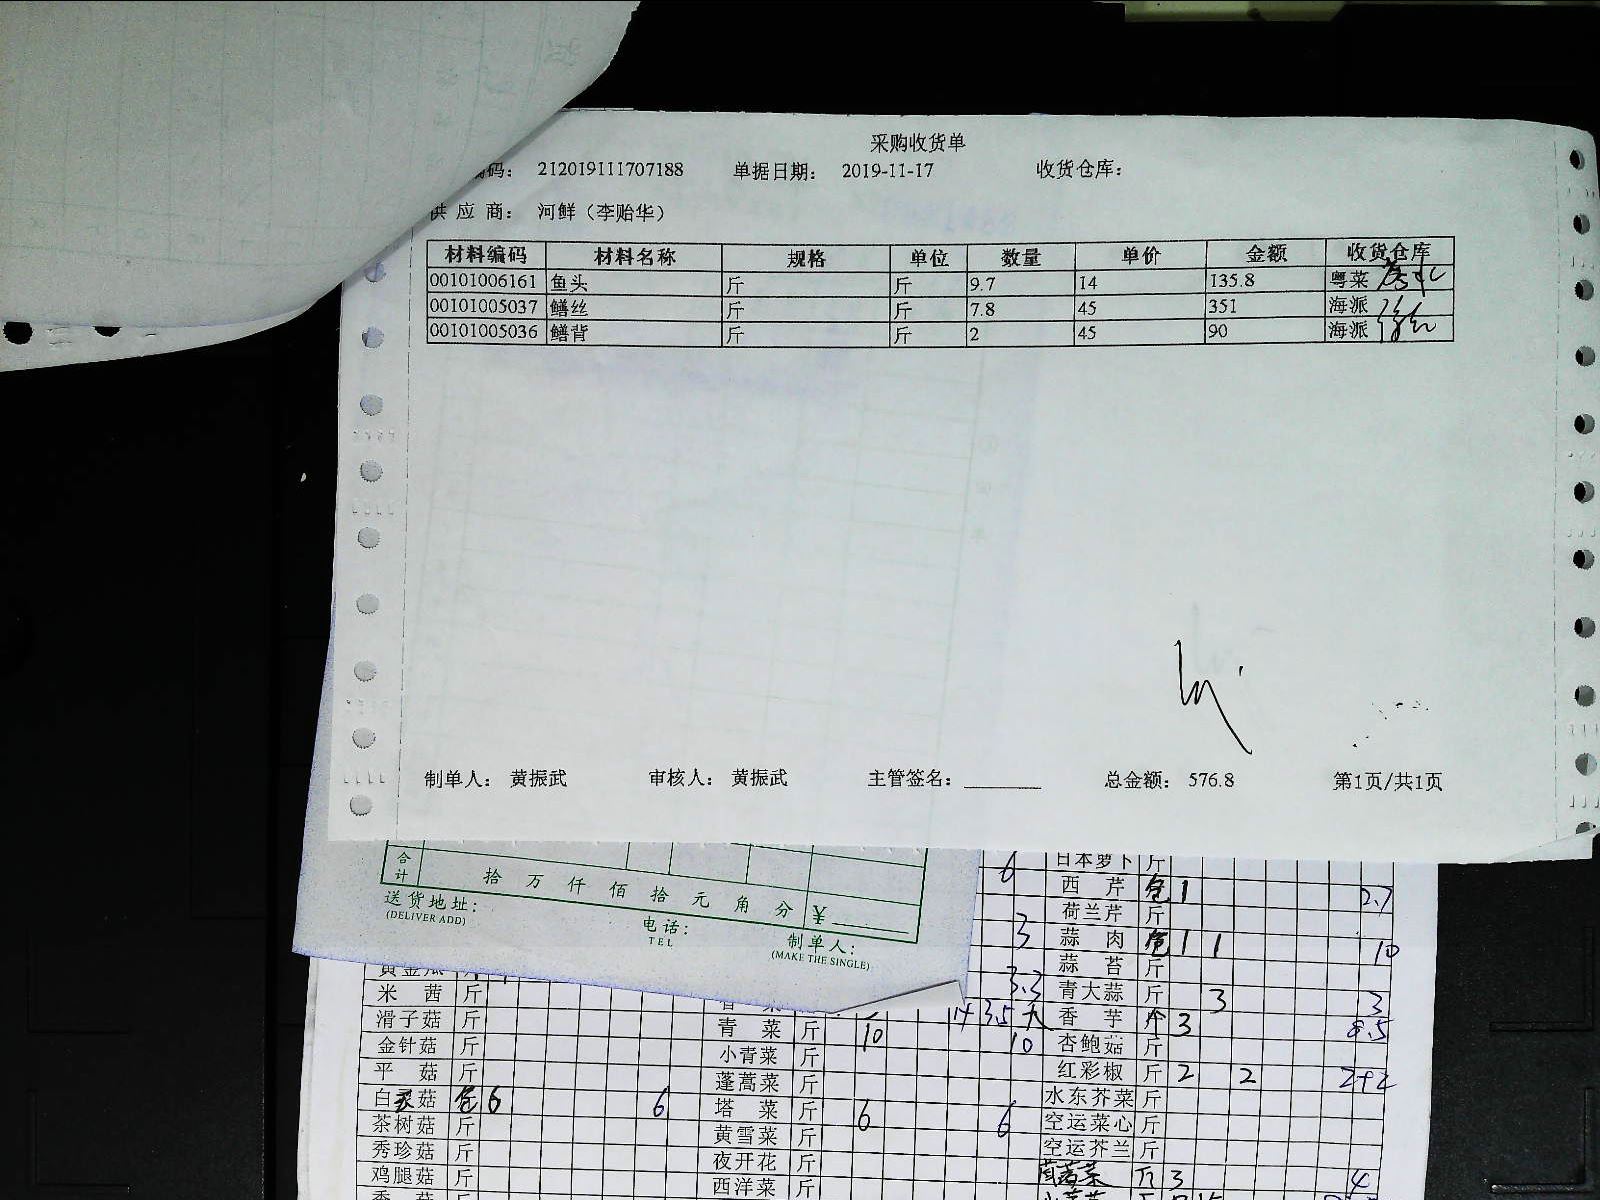 采购收货单
编码： 212019111707188 单据日期： 2019-11-17 收货仓库：
供 应 商： 河鲜（李贻华）
材料编码 材料名称 规格 单位 数量 单价 金额 收货仓库
00101006161 鱼头 斤 斤 9.7 14 135.8 粤菜
00101005037 鳝丝 斤 斤 7.8 45 351 海派
00101005036 鳝背 斤 斤 2 45 90 海派
制单人： 黄振武 审核人： 黄振武 主管签名： 总金额： 576.8 第1页/共1页
合计 拾 万 仟 佰 拾 元 角 分 ¥
送货地址：
(DELIVER ADD)
电话：
TEL
制单人：
(MAKE THE SINGLE)
6 日本萝卜 斤
西 芹 包 1 2.7
荷兰芹 斤
3 蒜 肉 包 1 1 10
蒜 苔 斤
黄金瓜 斤 3.3 青大蒜 斤 3 3
米 茜 斤 14 3.5 香 芋 个 3 8.5
滑子菇 斤 青 菜 斤 10 10 杏鲍菇 斤
金针菇 斤 小青菜 斤 红彩椒 斤 2 2 2+2
平 菇 斤 蓬蒿菜 斤 水东芥菜 斤
白 菇 包 6 6 塔 菜 斤 6 6 空运菜心 斤
茶树菇 斤 黄雪菜 斤 空运芥兰 斤
秀珍菇 斤 夜开花 斤 斤 3 4
鸡腿菇 斤 西洋菜 斤